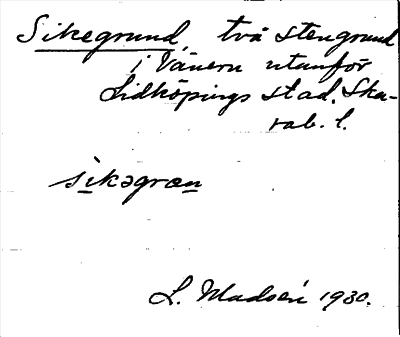 Sikegrund, två stengrund
i Vänern utanför
Lidköpings stad. Ska-
rab. l.
sikəgrœn
L. Madsén 1930.